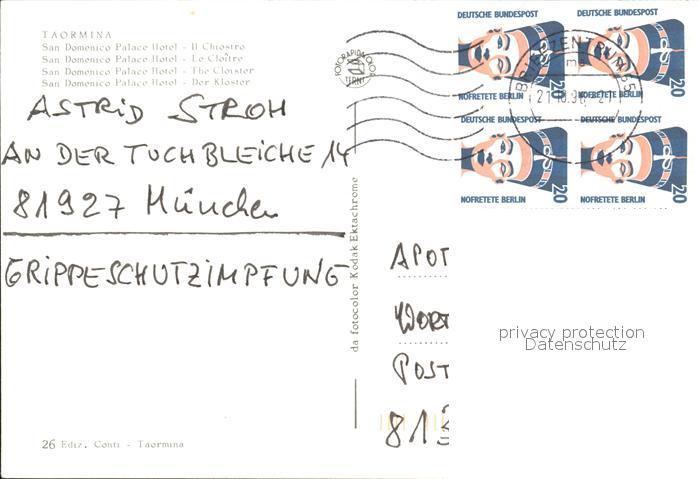 TAORMINA
San Domenico Palace Hotel - Il Chiostro
San Domenico Palace Hotel - Le Cloître
San Domenico Palace Hotel - The Cloister
San Domenico Palace Hotel - Der Kloster
ASTRID STROH
AN DER TUCHBLEICHE 14
81927 München
GRIPPESCHUTZIMPFUNG
26 Ediz. Conti - Taormina
da fotocolor Kodak Ektachrome
FOTORAPIDACOLOR
TERNI
DEUTSCHE BUNDESPOST
20
NOFRETETE BERLIN
DEUTSCHE BUNDESPOST
20
NOFRETETE BERLIN
DEUTSCHE BUNDESPOST
20
NOFRETETE BERLIN
DEUTSCHE BUNDESPOST
20
NOFRETETE BERLIN
BRIEFZENTRUM
APOT
WORT
POST
813
privacy protection
Datenschutz